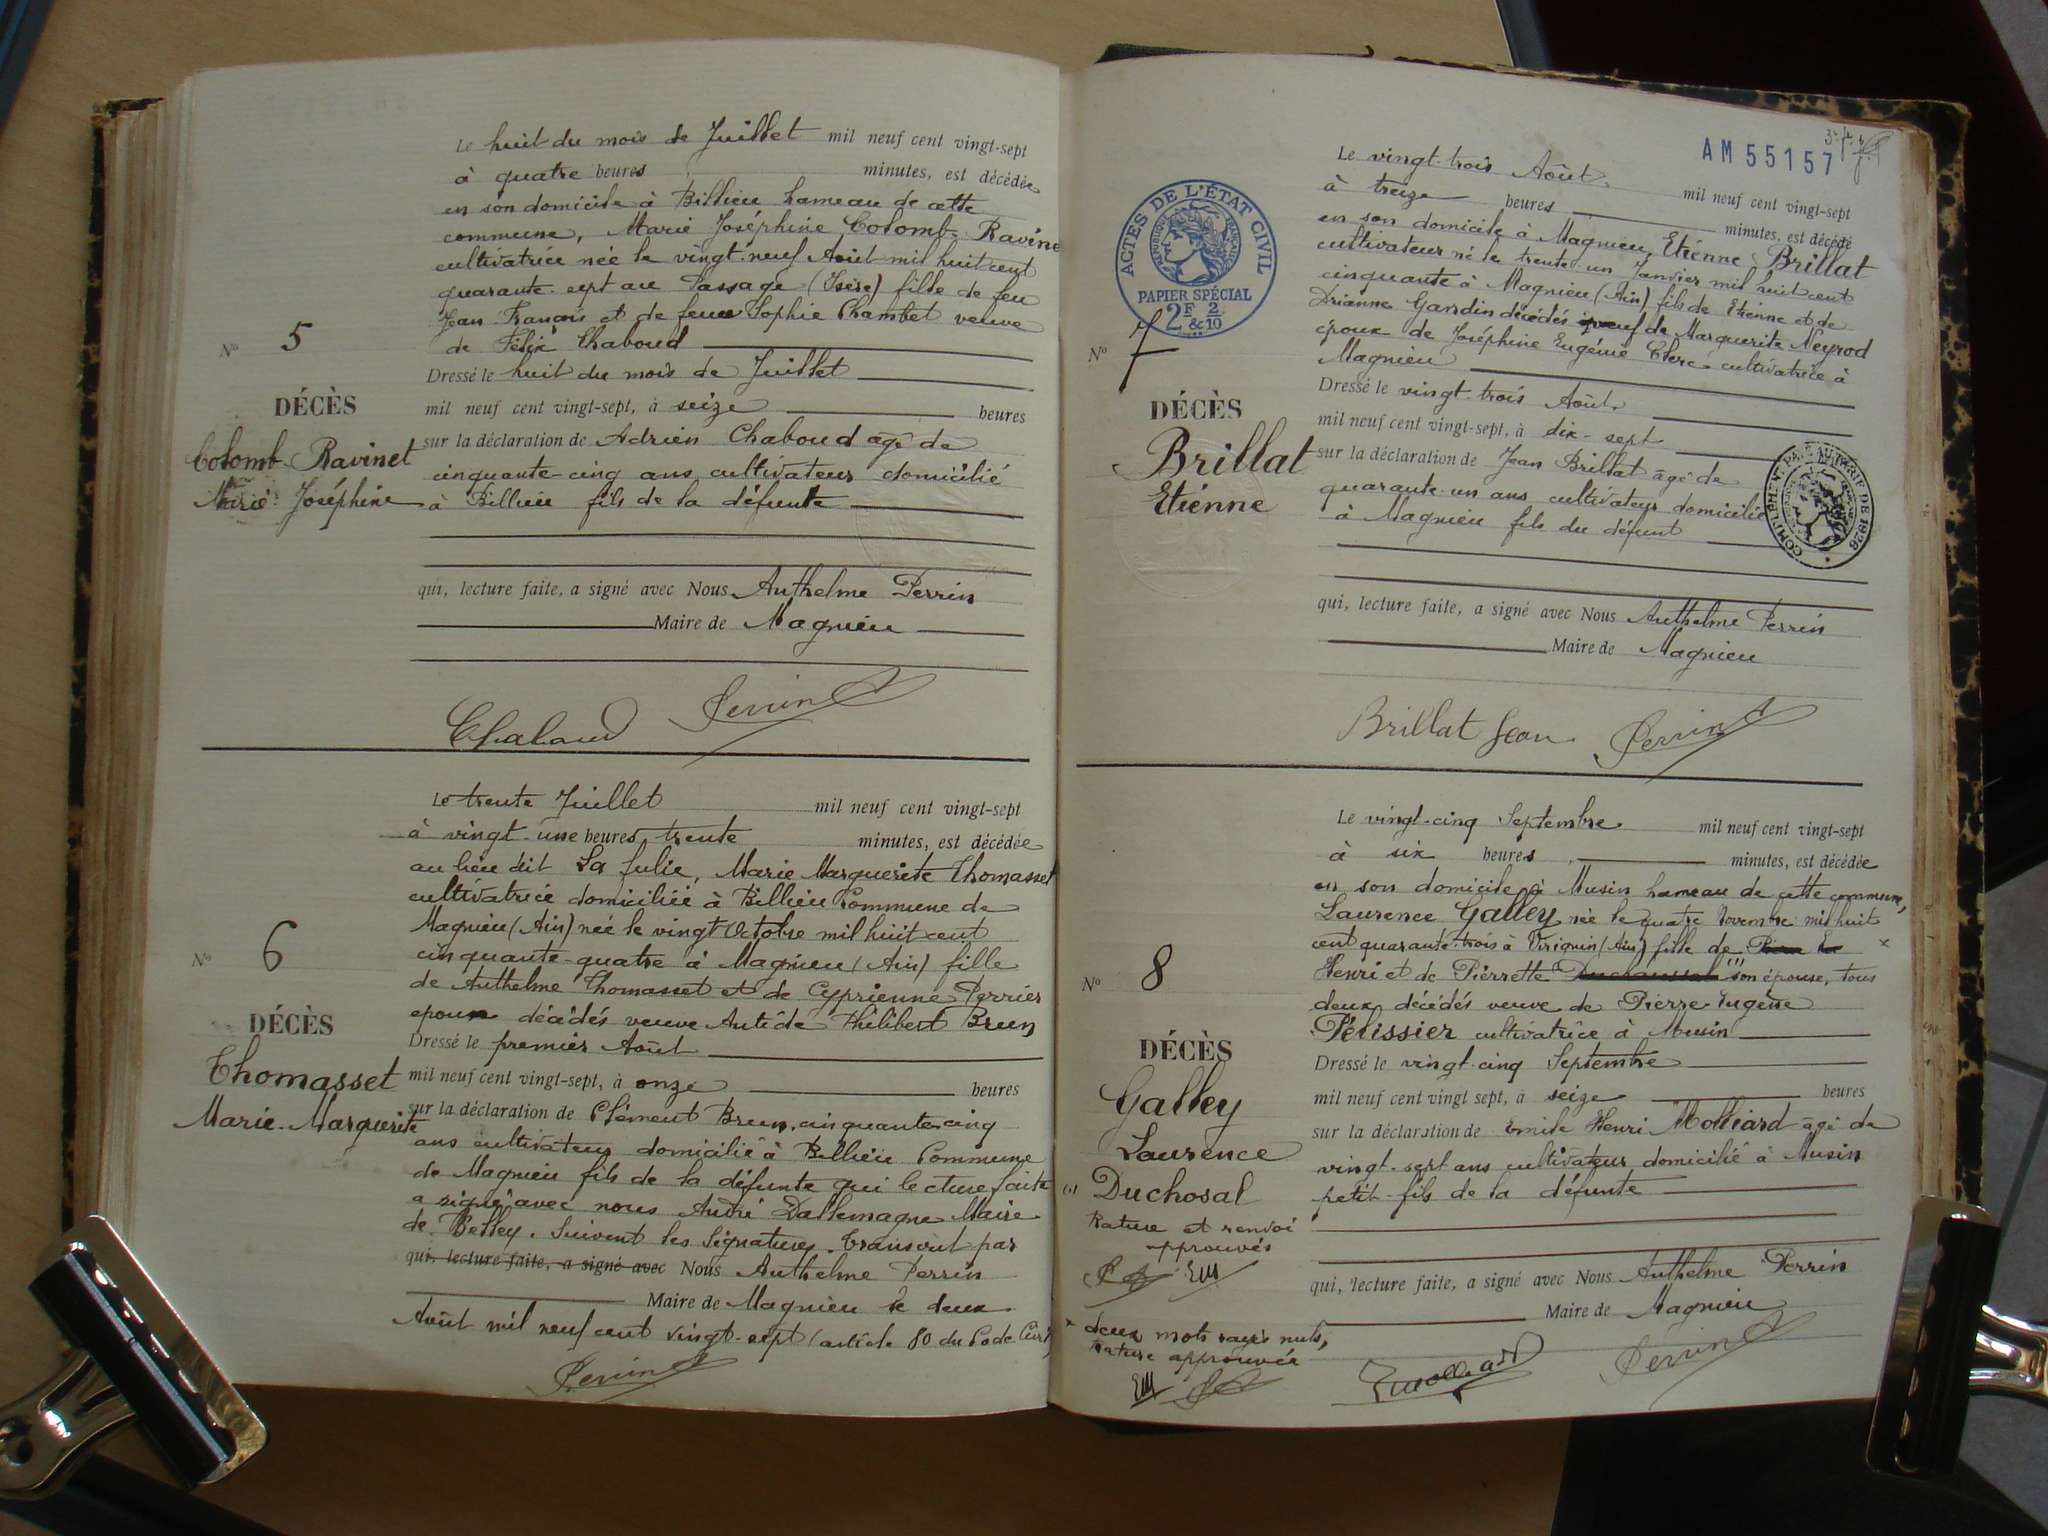 Le huit du mois de Juillet mil neuf cent vingt-sept
à quatre heures minutes, est décédée
en son domicile à Billieu hameau de cette
commune, Marie Joséphine Colomb-Ravine
cultivatrice née le vingt-neuf Août mil huit cent
quarante-sept au Passage (Isère) fille de feu
Jean François et de feue Sophie Chambet veuve
de Félix Chaboud
No 5
Dressé le huit du mois de Juillet
DÉCÈS
mil neuf cent vingt-sept, à seize heures
Colomb-Ravinet
Marie Joséphine
sur la déclaration de Adrien Chaboud âgé de
cinquante-cinq ans cultivateur domicilié
à Billieu fils de la défunte
qui, lecture faite, a signé avec Nous Anthelme Perrin
Maire de Magnieu
Chaboud Perrin
Le trente Juillet mil neuf cent vingt-sept
à vingt-une heures trente minutes, est décédée
au lieu dit La Julie, Marie Marguerite Thomasset
cultivatrice domiciliée à Billieu Commune de
Magnieu (Ain) née le vingt Octobre mil huit cent
cinquante-quatre à Magnieu (Ain) fille
de Anthelme Thomasset et de Cyprienne Perrier
epoux décédés veuve Philibert Brun
No 6
Dressé le premier Août
DÉCÈS
mil neuf cent vingt-sept, à onze heures
Thomasset
Marie-Marguerite
sur la déclaration de Clément Brun, cinquante-cinq
ans cultivateur domicilié à Billieu Commune
de Magnieu fils de la défunte qui lecture faite
a signé avec nous André Dallemagne Maire
de Belley. Suivent les Signatures. Transcrit par
qui, lecture faite, a signé avec Nous Anthelme Perrin
Maire de Magnieu le deux
Août mil neuf cent vingt-sept (article 80 du Code Civil)
Perrin
AM 55157
ACTES DE L'ÉTAT CIVIL
RÉPUBLIQUE FRANÇAISE
PAPIER SPÉCIAL
2F 2/10
&
Le vingt-trois Août mil neuf cent vingt-sept
à treize heures minutes, est décédé
en son domicile à Magnieu, Etienne Brillat
cultivateur né le trente un Janvier mil huit cent
cinquante à Magnieu (Ain) fils de Etienne et de
Drianne Gardin décédés veuf de Marguerite Neyrod
époux de Joséphine Eugénie Clerc cultivatrice à
Magnieu
No 7
Dressé le vingt-trois Août
DÉCÈS
mil neuf cent vingt-sept, à dix-sept
Brillat
Etienne
sur la déclaration de Jean Brillat âgé de
quarante-un ans cultivateur domicilié
à Magnieu fils du défunt
COMPLÉMENT PAYÉ AU TARIF DE 1926
qui, lecture faite, a signé avec Nous Anthelme Perrin
Maire de Magnieu
Brillat Jean Perrin
Le vingt-cinq Septembre mil neuf cent vingt-sept
à six heures minutes, est décédée
en son domicile à Musin hameau de cette commune,
Laurence Galley née le quatre Novembre mil huit
cent quarante-trois à Virignin (Ain) fille de x
Henri et de Pierrette Duchaussal (1) son épouse, tous
deux décédés veuve de Pierre Eugène
Pélissier cultivatrice à Musin
No 8
Dressé le vingt-cinq Septembre
DÉCÈS
mil neuf cent vingt sept, à seize heures
Galley
Laurence
sur la déclaration de Emile Henri Molliard âgé de
vingt-sept ans cultivateur domicilié à Musin
petit-fils de la défunte
(1) Duchosal
Rature et renvoi
approuvés
EM
qui, lecture faite, a signé avec Nous Anthelme Perrin
Maire de Magnieu
x deux mots rayés nuls,
rature approuvée
EM
Emolliard Perrin